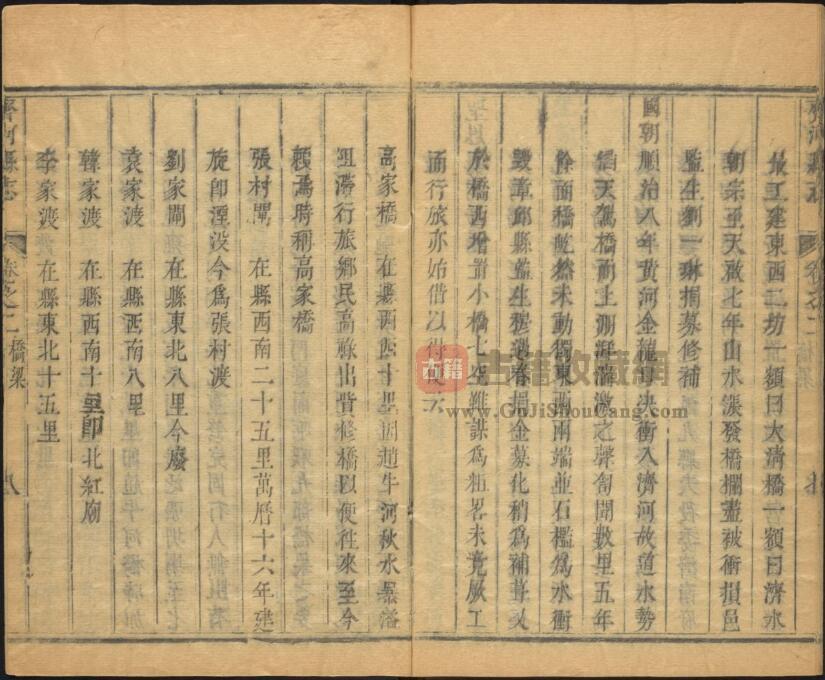 最工建東西二坊一額曰大清橋一額曰濟水
朝宗至天啟七年山水漲發橋欄盡被衝損邑
監生劉一琳捐募修補
國朝順治八年黃河金龍口決衝入濟河故道水勢
滔天駕橋而上湖湃溝激之聲訇聞數里五年
餘而橋屹然未動獨東西兩端並石檻為水衝
毀章邱縣監生穆遇春捐金募化稍為補葺又
於橋西增置小橋七空雖謀為粗畧未竟厥工
而行旅亦始借以得便云
高家橋 在縣西四十里因趙牛河秋水暴溢
阻滯行旅鄉民高祿出貲修橋以便徃來至今
賴焉時稱高家橋
張村閘 在縣西南二十五里萬曆十六年建
旋即湮沒今為張村渡
劉家閘 在縣東北八里今廢
袁家渡 在縣西南八里
韓家渡 在縣西南十里即北紅廟
李家渡 在縣東北十五里
齊河縣志 卷之二 橋梁 八
古籍 古籍收藏網
www.GuJiShouCang.com